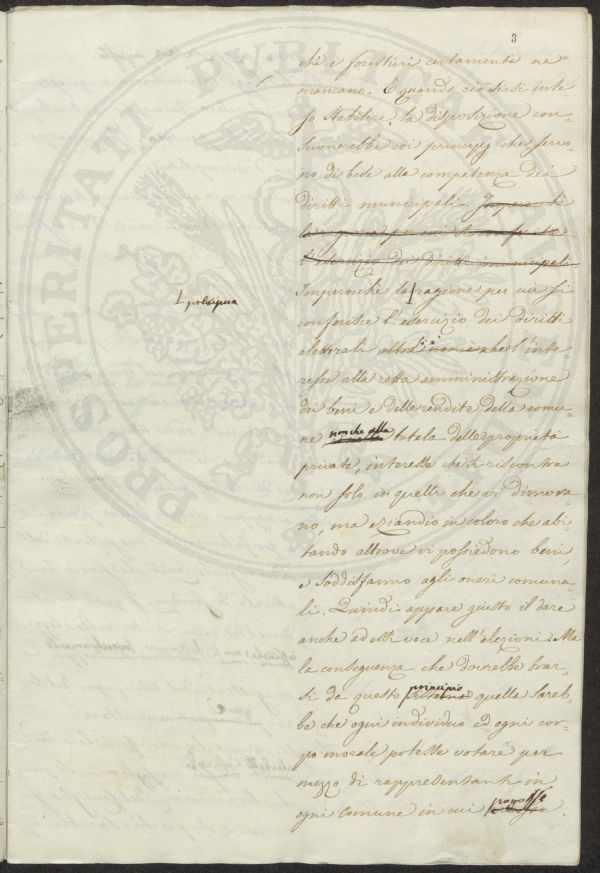 3
chè i forestieri certamente ne
mancano. E quando ciò siasi inte-
so stabilire, la disposizione con-
suonerebbe coi principj che servo-
no di base alla competenza dei
diritti municipali. Imperochè
la ragione per cui si conferisce
l'esercizio dei diritti municipali.
Imperocchè la ragione per cui si
precipua
conferisce l'esercizio dei diritti
elettorali altra non è che l'inte-
si è
resse alla retta amministrazione
dei beni e delle rendite della comu-
ne nonche alla tutela delle proprietà
private, interesse che si riscontra
non solo in quelli che vi dimora-
no, ma eziandio in coloro che abi-
tando altrove vi possiedono beni,
e soddisfanno agli oneri comuna-
li. Quindi appare giusto il dare
anche ad essi voce nell'elezioni. Ma
la conseguenza che dovrebbe trar-
si da questo principio quella sareb-
be che ogni individuo ed ogni cor-
po morale potesse votare per
mezzo di rappresentanti in
ogni comune in cui pagasse
PROSPERITATI PVBLICAE